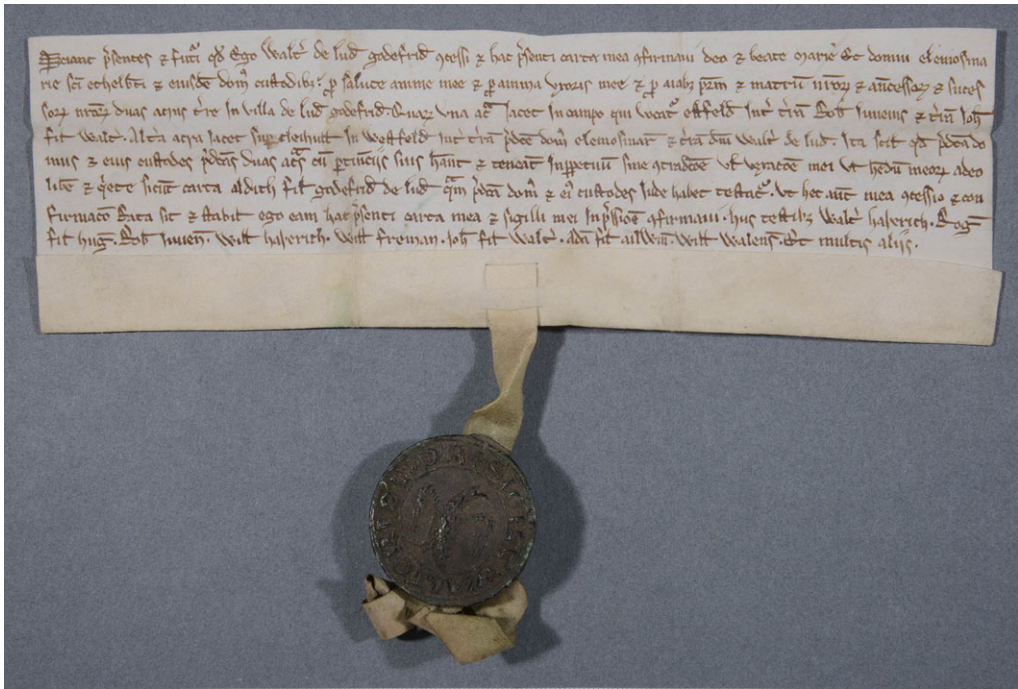 Sciant p̃sentes & futuri qđ Ego Walt̃ de lud godefrid ꝯcessi & hac p̃senti carta mea ꝯfirmaui deo & beate marie Et domui elemosina
rie sc̃i ethelb̃ti & eiusdẽ dom̃ custodibꝫ ꝓ salute anime mee & ꝓ anima uxoris mee & ꝓ aĩabꝫ pat̃m & matrum nr̃oꝝ & ancessoꝝ & succes
soꝝ nr̃oꝝ duas acras t̃re in uilla de lud godefrid. Quaꝝ una ac̃ Iacet in campo qui uocat᷑ estfeld int̃ t̃rã Rob̃ Iuuenis & t̃rã Joh̃
fil̃ Walt̃. Alt̃a acra iacet in Westfeld int̃ t̃rã p̃dc̃e dom̃ elemosinar̃ & t̃rã dñi Walt̃ de lud. Ita scil̃ qđ p̃dc̃a do
mus & eius custodes p̃dc̃as duas ac̃s cũ ꝑtinẽciis suis hãnt & teneãt inꝑpetuũ sine ꝯtradc̃õe ul̃ uexatõe mei ul̃ hedũ meoꝝ adeo
lib̃e & q̃ete sicut carta aldith fil̃ godefrid de lud qãm p̃dc̃a dom̃ & ei᷒ custodes inde habet testat᷑. Vt hec aũt mea ꝯcessio & con
firmac̃o rata sit & stabil̃ ego eam hac p̃senti carta mea & sigilli mei inp̃ssiõe ꝯfirmaui. Hiis testibꝫ Walt̃ haserich. Rog̃
fil̃ hug̃. Rob̃ iuuen̄. Will̃ haserich. Will̃ freman. Joh̃ fil̃ Walt̃. Ad̃ fil̃ ailWin̄. Will̃ Walens̃. Et multis aliis.